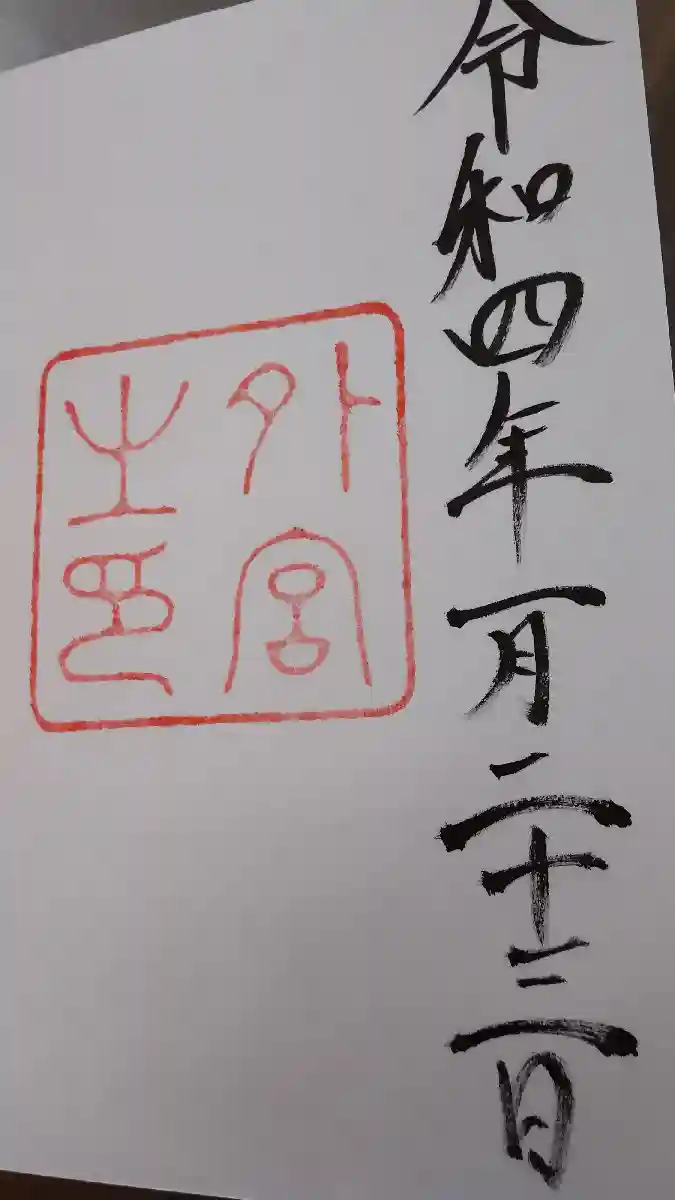 令和四年一月二十三日
外宮
之印